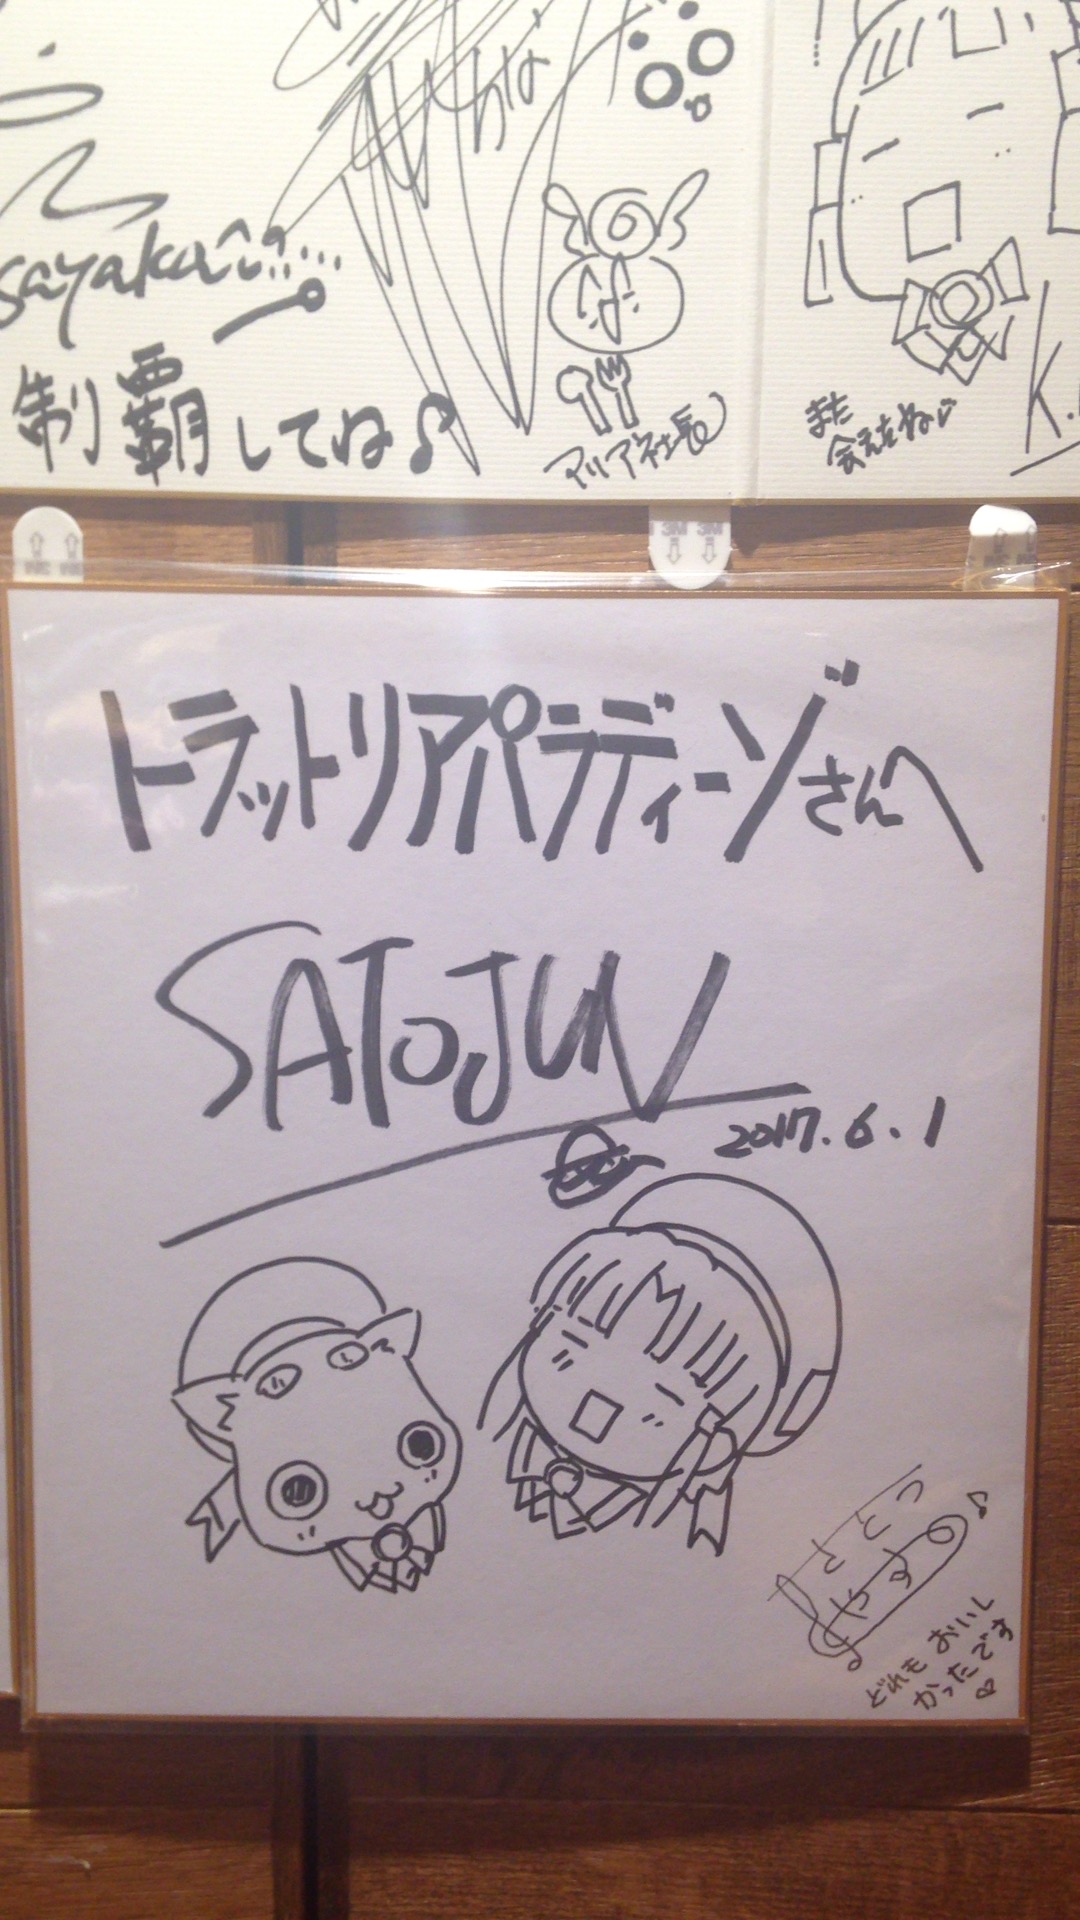 かな
sayaka
制覇してね♪
アリア社長
また
会えたね
K.
3M 3M
トラットリアパラディーゾさんへ
SATOJUN
2017.6.1
どれもおいし
かったです♡